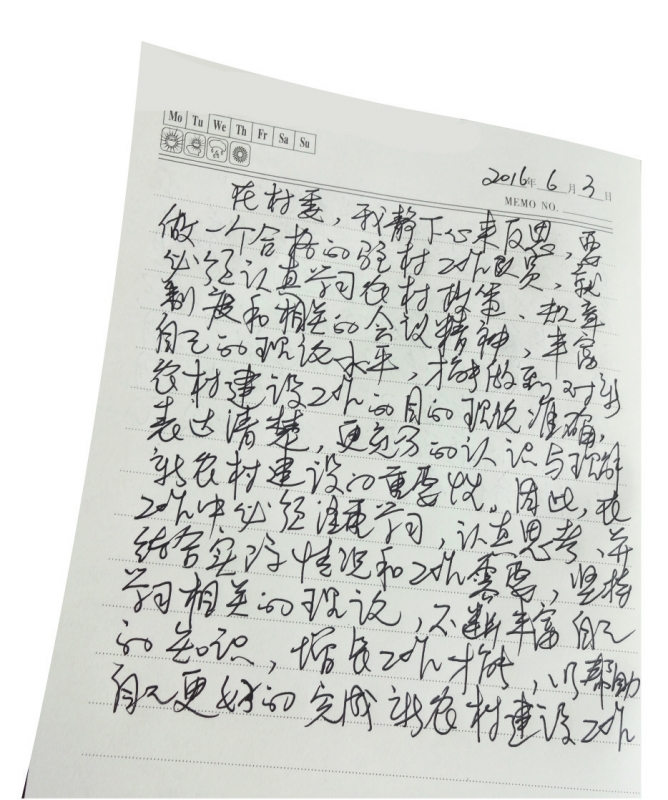 Mo Tu We Th Fr Sa Su
2016年6月3日
MEMO NO.
在村委，我静下心来反思，要
做一个合格的驻村工作队员，就
必须认真学习农村政策、规章
制度和相关的会议精神，丰富
自己的理论水平，才能做到对新
农村建设工作的目的理论准确，
表达清楚，更充分的认识与理解
新农村建设的重要性。因此，在
工作中必须注重学习，认真思考、并
结合实际情况和工作需要，坚持
学习相关的理论，不断丰富自己
的知识，增长工作才能，以帮助
自己更好的完成新农村建设工作